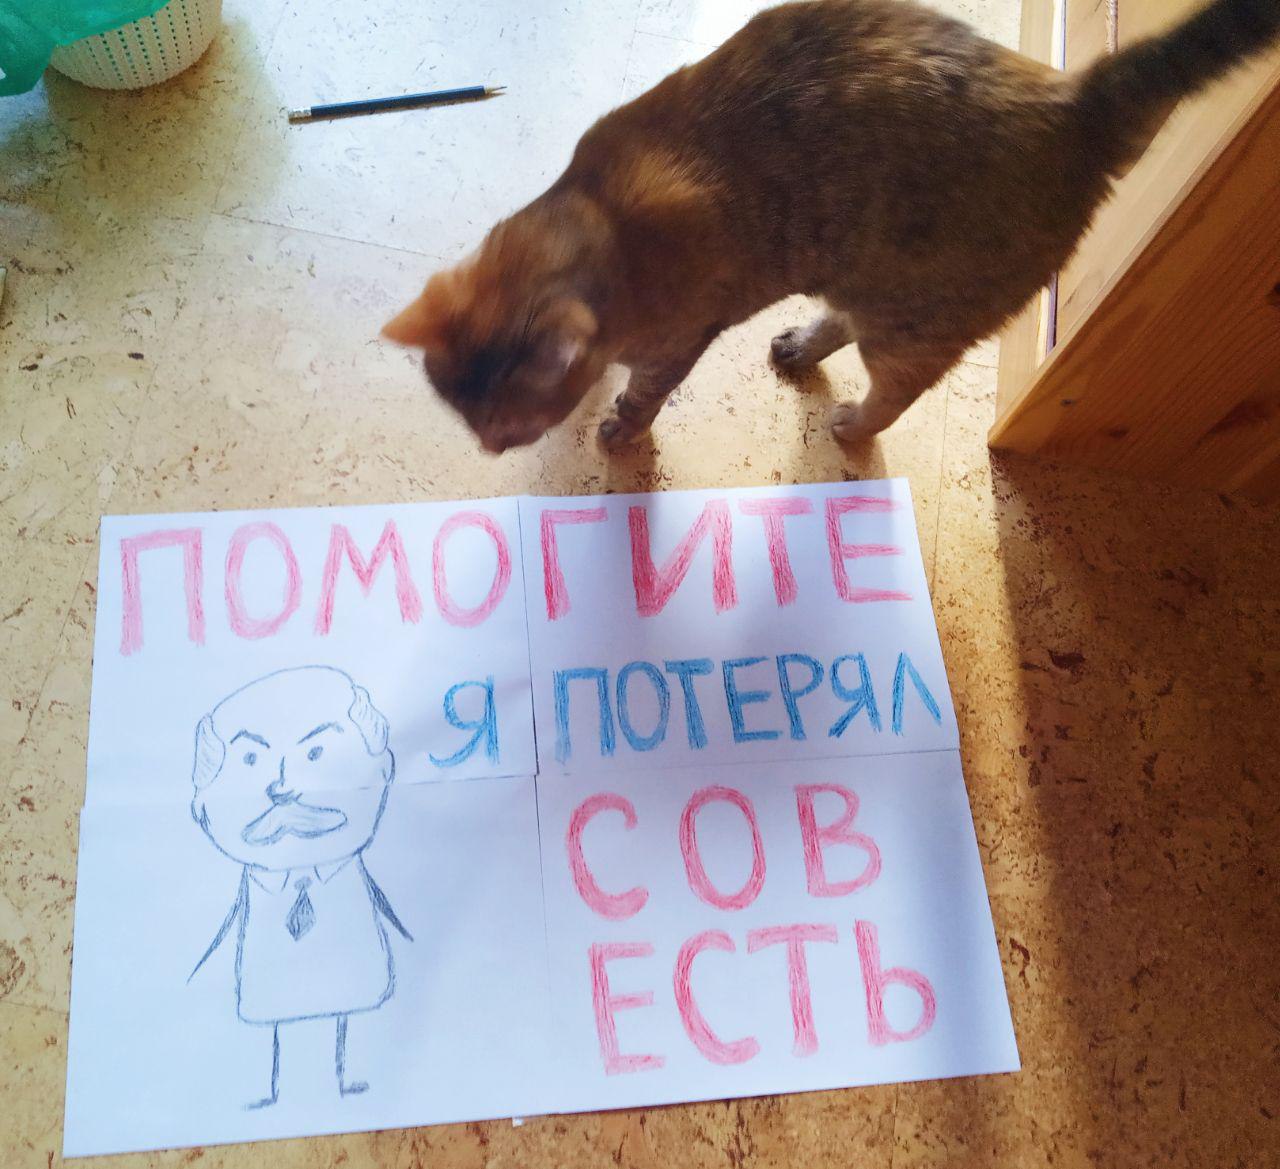 ПОМОГИТЕ
Я ПОТЕРЯЛ
СОВ
ЕСТЬ